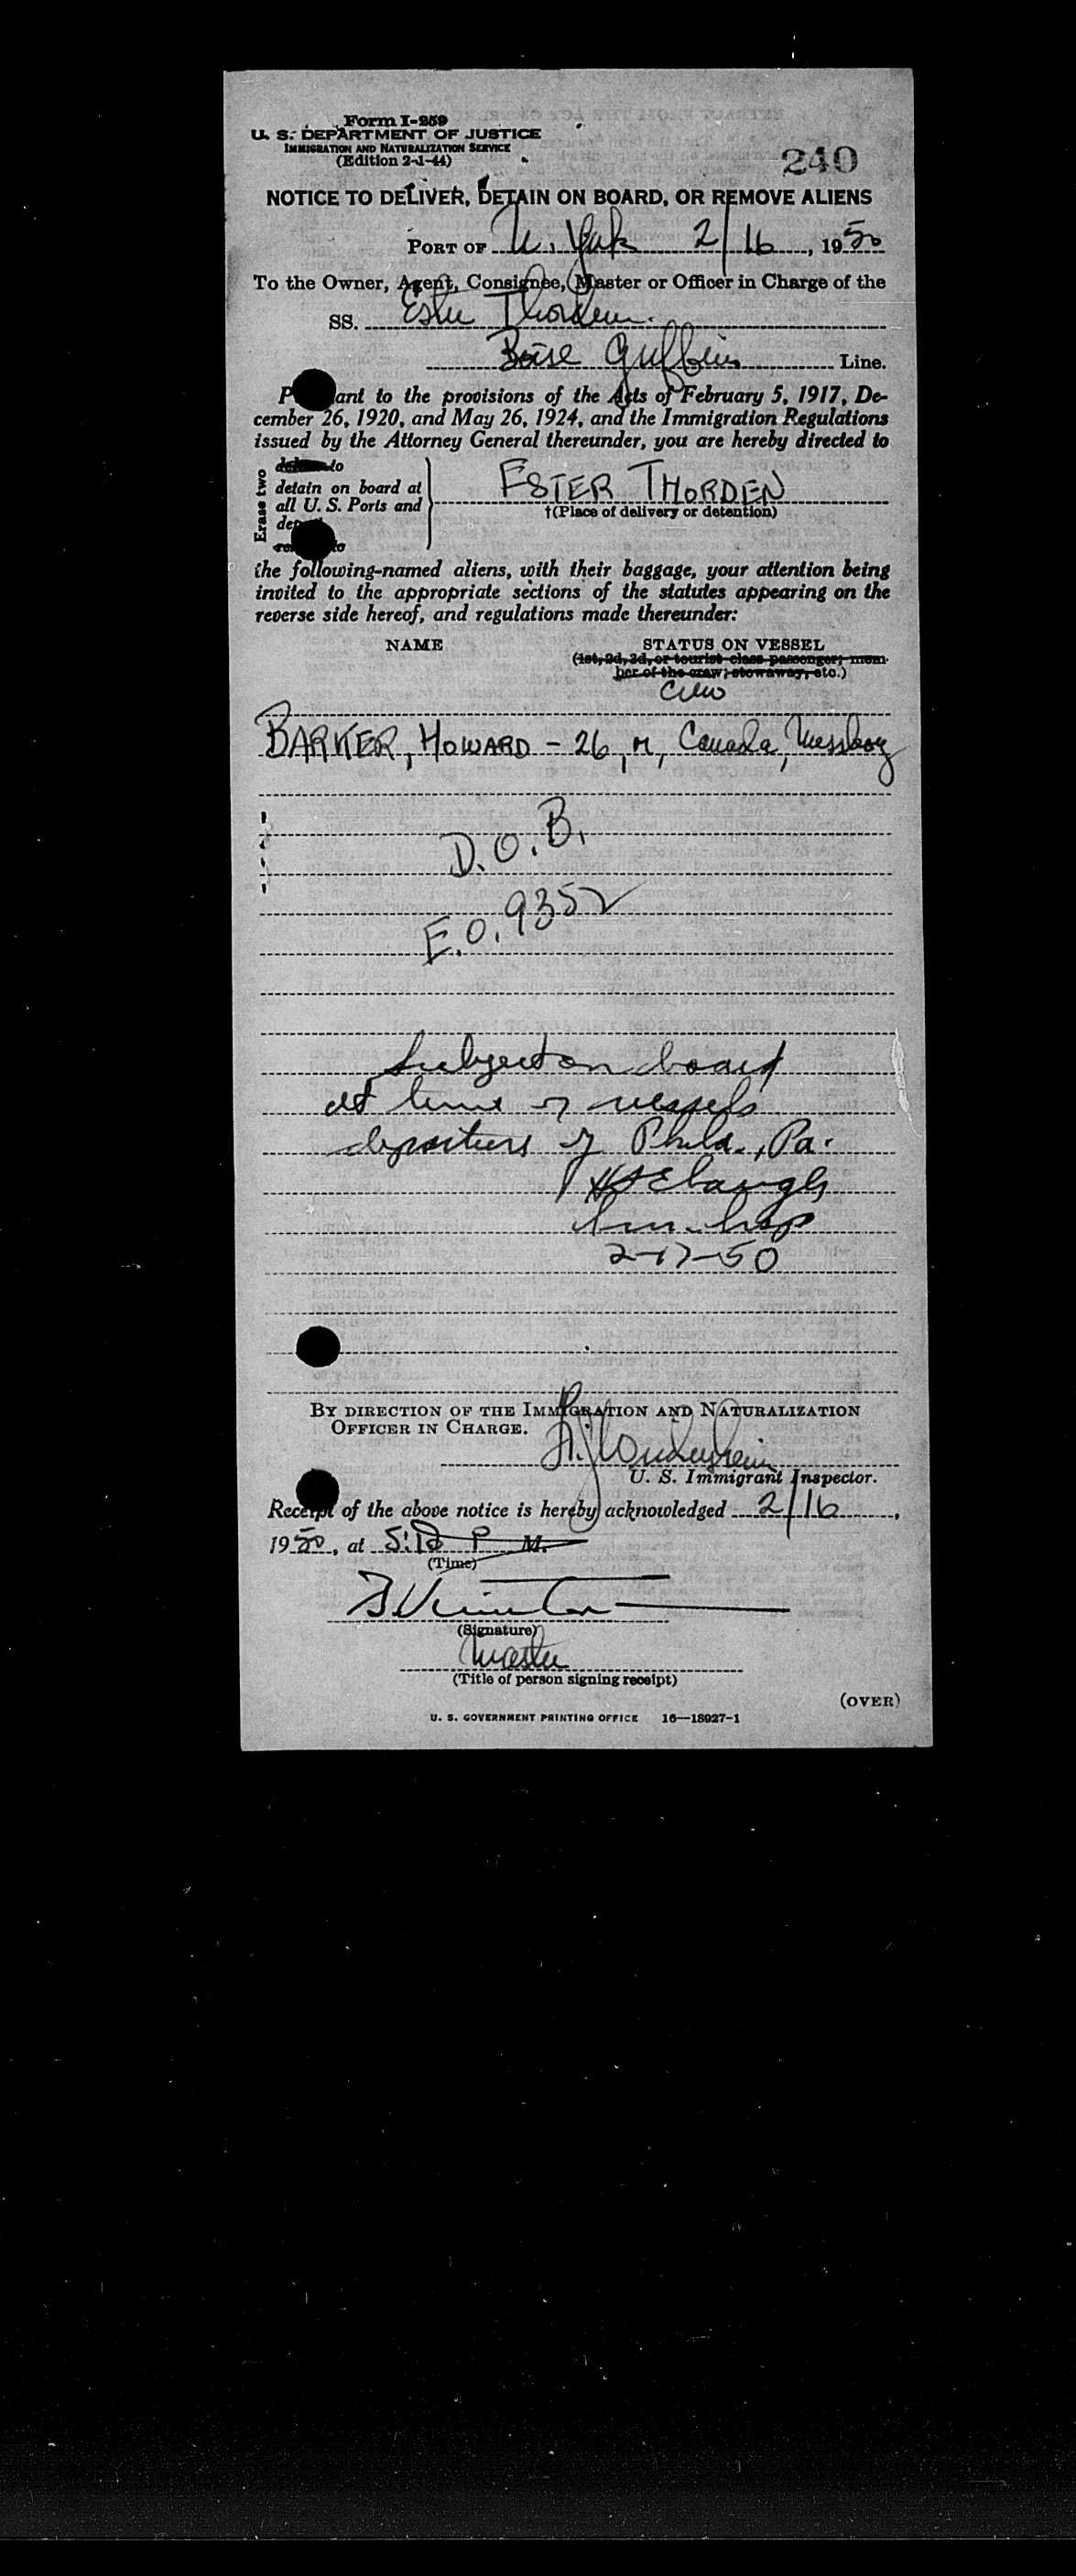 Form I-259
U. S. DEPARTMENT OF JUSTICE
IMMIGRATION AND NATURALIZATION SERVICE
(Edition 2-1-44)
240
NOTICE TO DELIVER, DETAIN ON BOARD, OR REMOVE ALIENS
PORT OF N. York 2/16, 1950
To the Owner, Agent, Consignee, Master or Officer in Charge of the
SS. Ester Thorden
Boise Griffin Line.
P ant to the provisions of the Acts of February 5, 1917, De-
cember 26, 1920, and May 26, 1924, and the Immigration Regulations
issued by the Attorney General thereunder, you are hereby directed to
Erase two
to
detain on board at
all U. S. Ports and
ESTER THORDEN
†(Place of delivery or detention)
dep
to
the following-named aliens, with their baggage, your attention being
invited to the appropriate sections of the statutes appearing on the
reverse side hereof, and regulations made thereunder:
NAME STATUS ON VESSEL
(1st, 2d, 3d, or tourist class passenger; mem-
ber of the crew; stowaway, etc.)
Crew
BARKER, HOWARD - 26, M, Canada, Messboy
D.O.B.
E.O. 9352
Subject on board
at time of vessels
departure of Phila., Pa.
Imm. Insp
2-17-50
BY DIRECTION OF THE IMMIGRATION AND NATURALIZATION
OFFICER IN CHARGE.
U. S. Immigrant Inspector.
Receipt of the above notice is hereby acknowledged 2/16,
1950, at 5:12 P M.
(Time)
(Signature)
Master
(Title of person signing receipt)
(OVER)
U. S. GOVERNMENT PRINTING OFFICE 16—18927-1